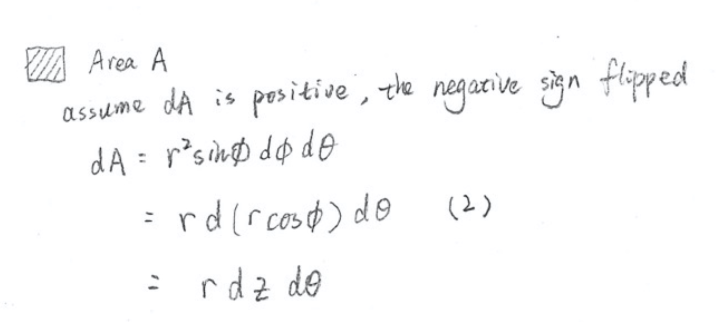 Area A
assume dA is positive, the negative sign flipped
dA = r²sinϕ dϕ dθ
= r d(r cosϕ) dθ (2)
= r dz dθ